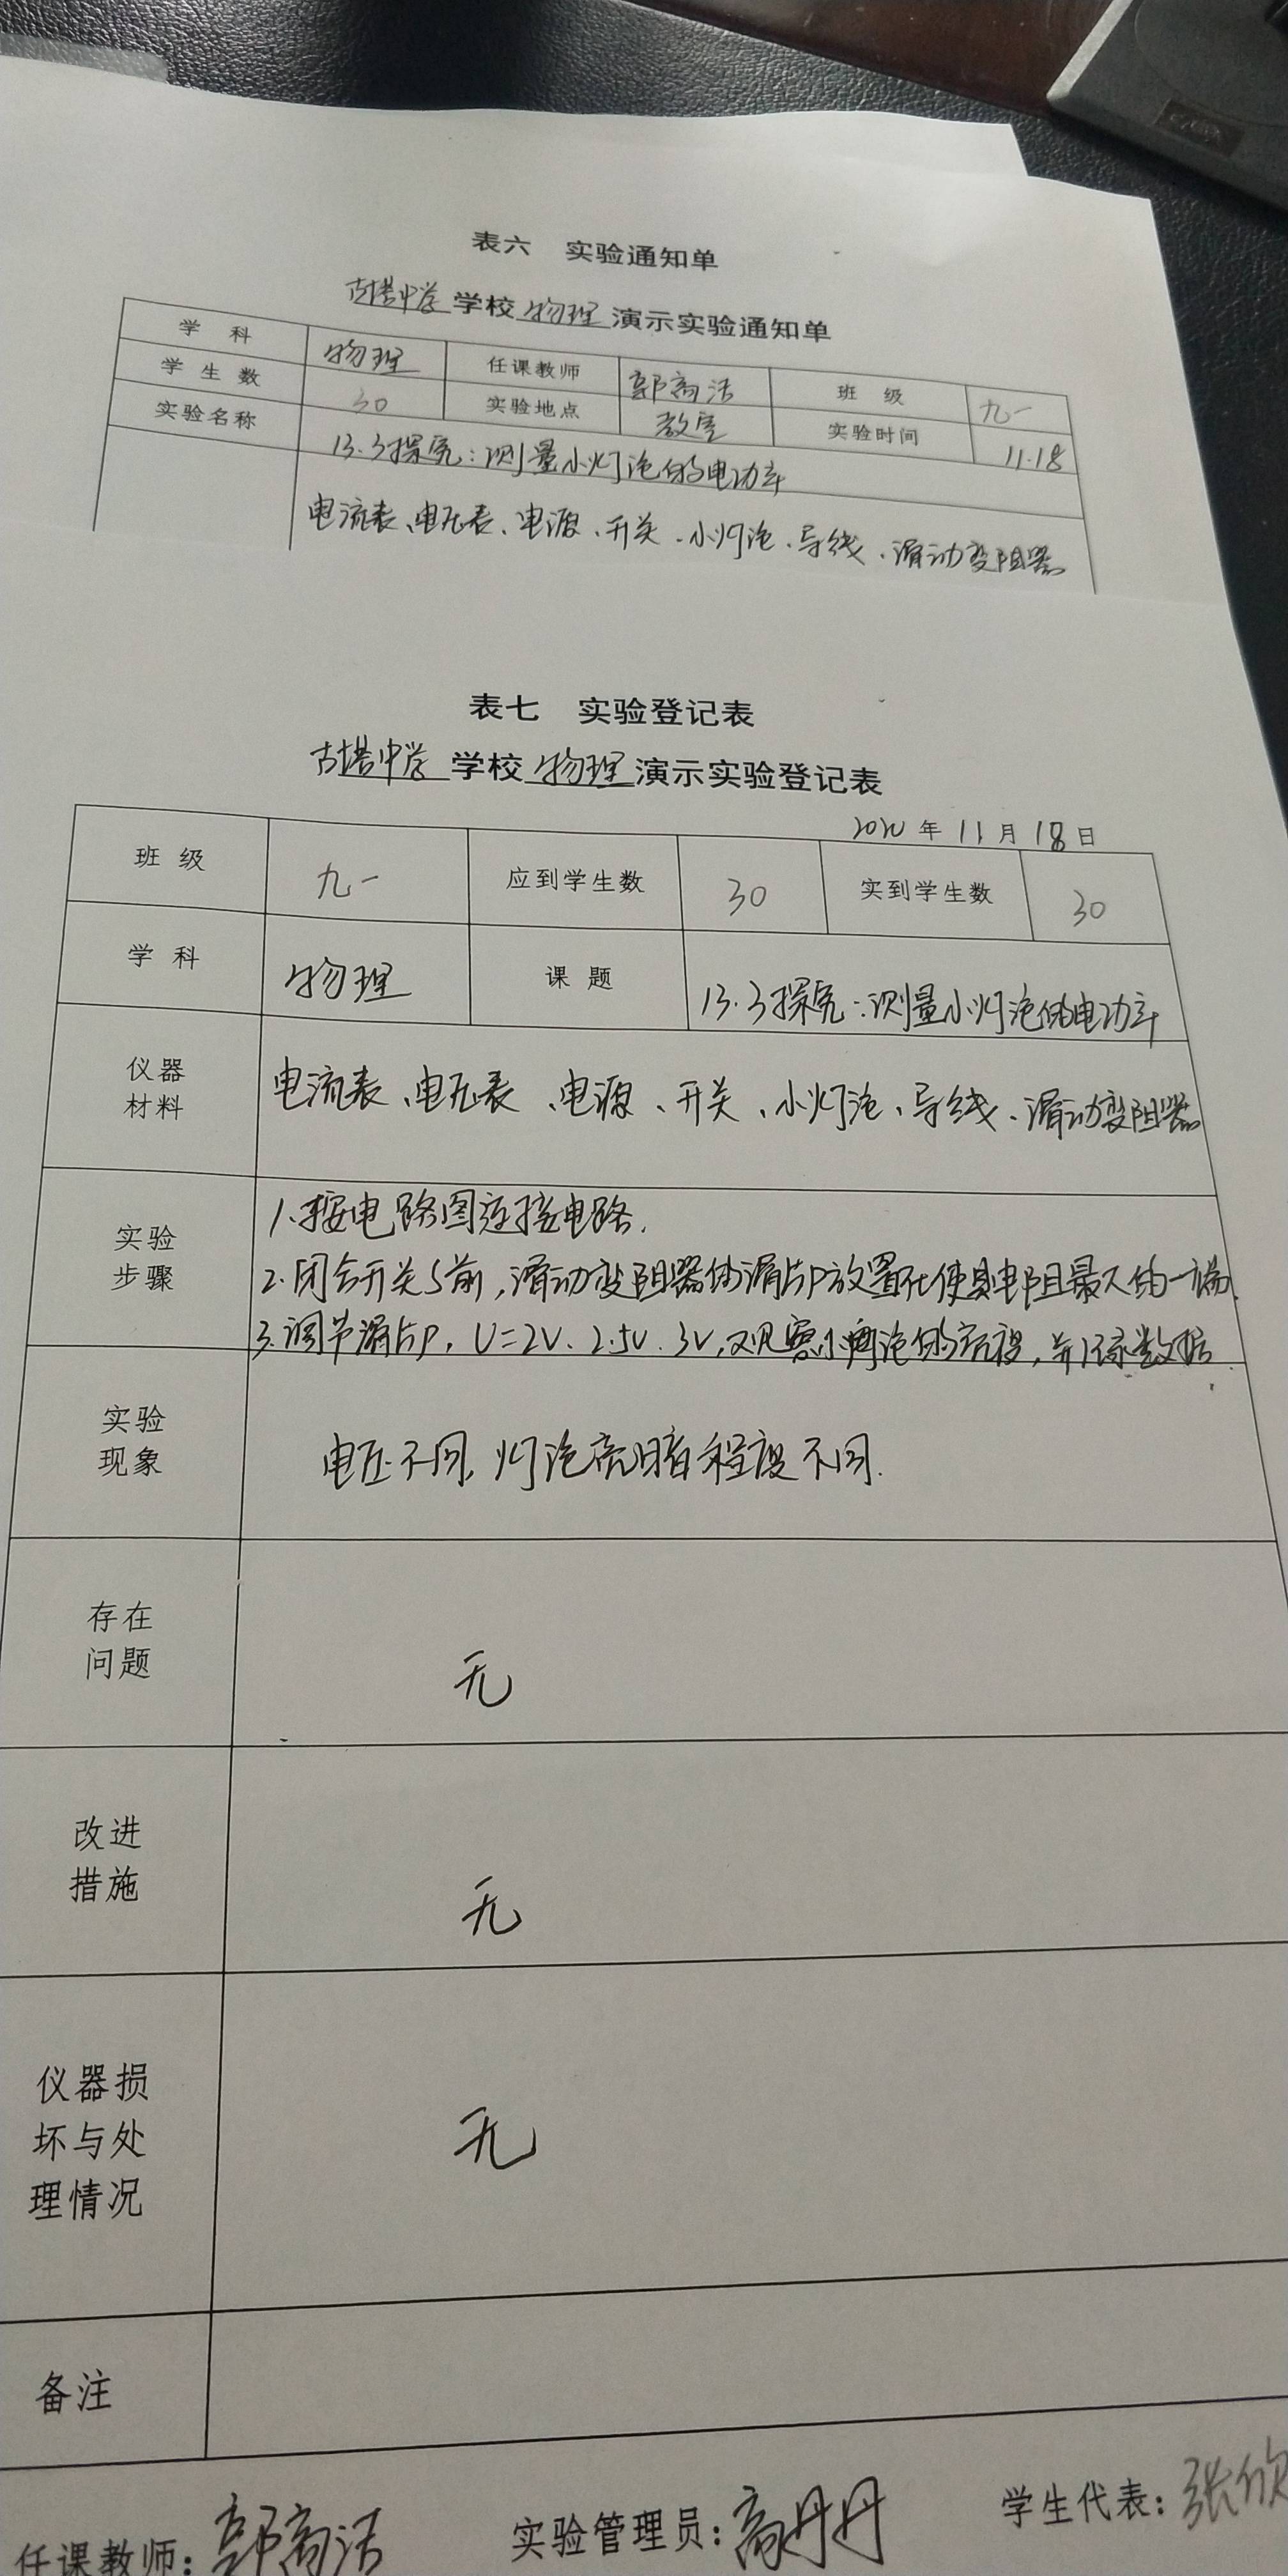 表六 实验通知单
古塔中学学校物理演示实验通知单
学科 物理 任课教师 郭商洁 班级 九一
学生数 30 实验地点 教室 实验时间 11.18
实验名称 13.3探究:测量小灯泡的电功率
电流表、电压表、电源、开关、小灯泡、导线、滑动变阻器
表七 实验登记表
古塔中学学校物理演示实验登记表
2020年11月18日
班级 九一 应到学生数 30 实到学生数 30
学科 物理 课题 13.3探究:测量小灯泡的电功率
仪器
材料
电流表、电压表、电源、开关、小灯泡、导线、滑动变阻器
实验
步骤
1.按电路图连接电路.
2.闭合开关S前,滑动变阻器的滑片P放置在使其电阻最大的一端.
3.调节滑片P,U=2V、2.5V、3V,观察小灯泡的亮暗,并记录数据.
实验
现象
电压不同,灯泡亮暗程度不同.
存在
问题
无
改进
措施
无
仪器损
坏与处
理情况
无
备注
任课教师: 实验管理员:高丹丹 学生代表:张欣